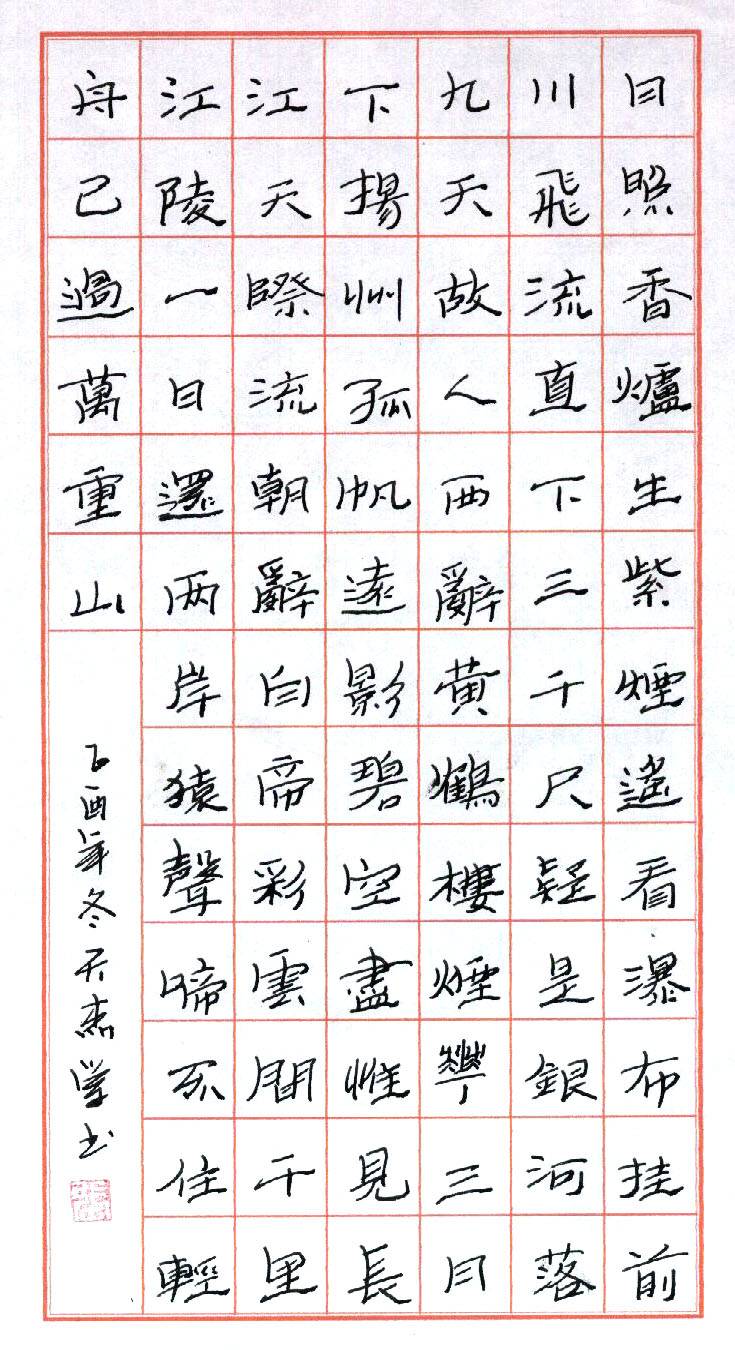 日照香爐生紫煙遙看瀑布挂前
川飛流直下三千尺疑是銀河落
九天故人西辭黄鶴樓煙華三月
下揚州孤帆遠影碧空盡惟見長
江天際流朝辭白帝彩雲間千里
江陵一日還两岸猿聲啼不住輕
舟已過萬重山
乙酉年冬天杰学书